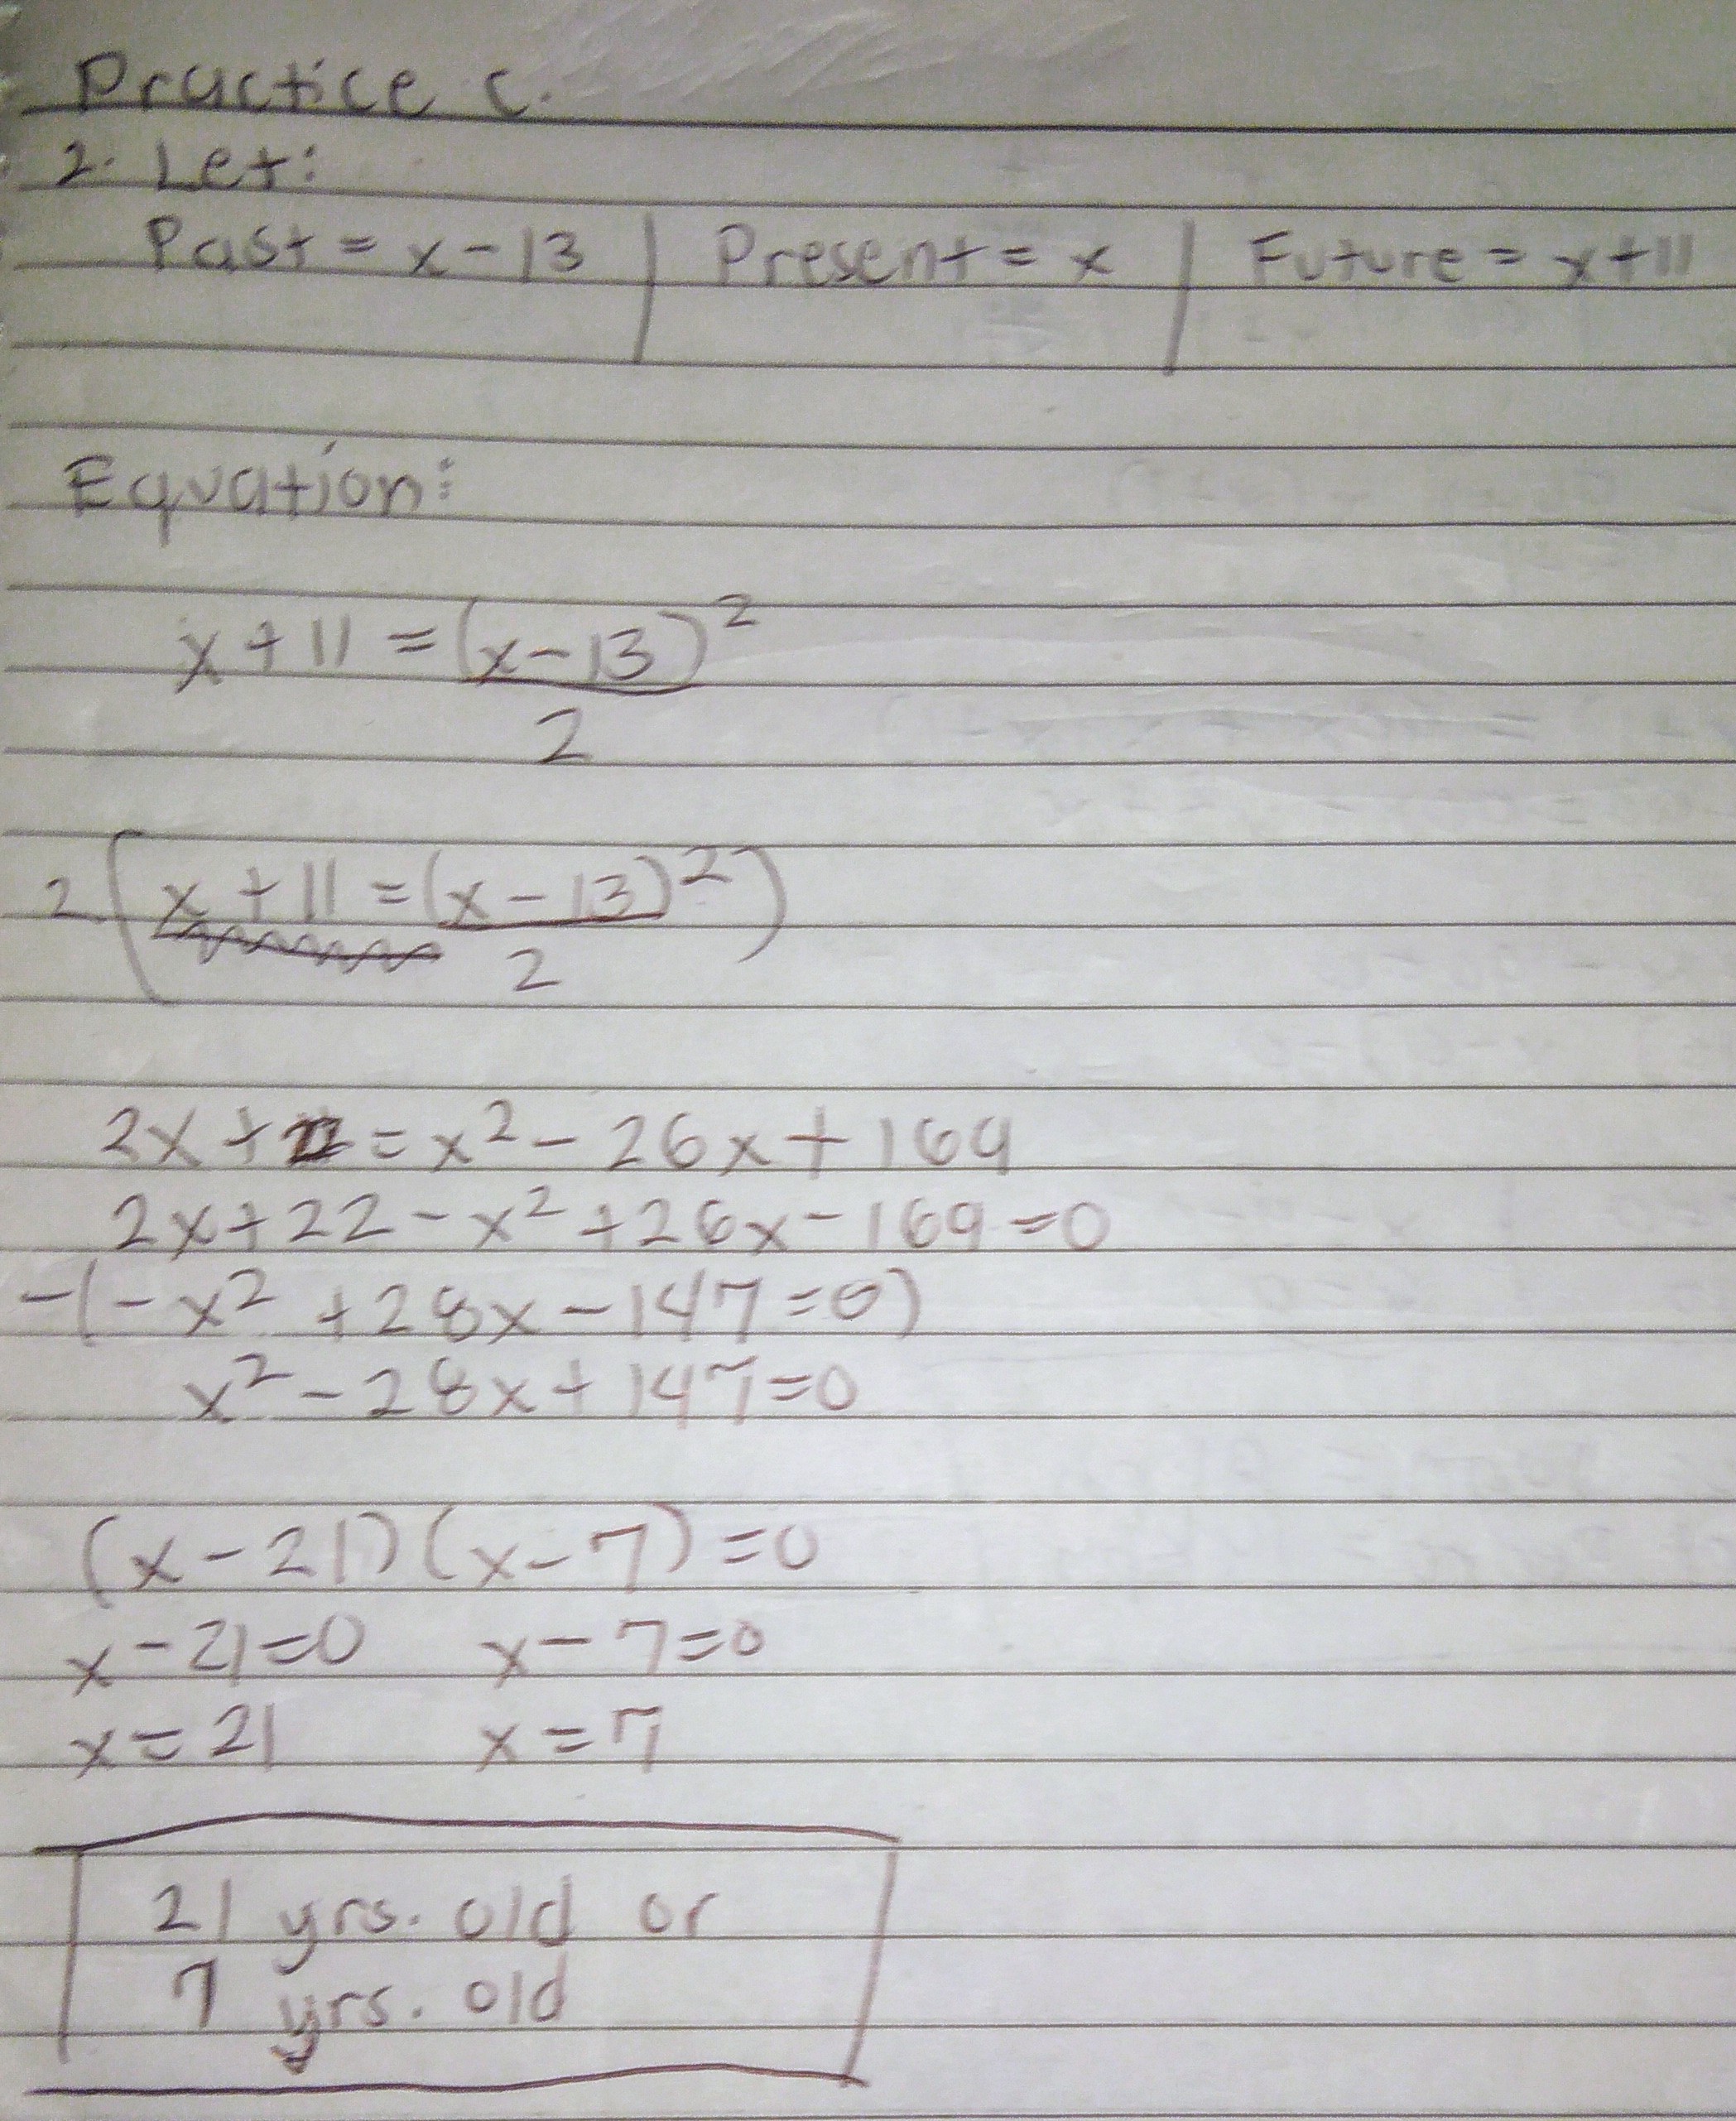 Practice C.
2. Let:
Past = x - 13 | Present = x | Future = x + 11
Equation:
x + 11 = (x - 13)² / 2
2 (x + 11 = (x - 13)² / 2)
2x + 22 = x² - 26x + 169
2x + 22 - x² + 26x - 169 = 0
-(-x² + 28x - 147 = 0)
x² - 28x + 147 = 0
(x - 21)(x - 7) = 0
x - 21 = 0 x - 7 = 0
x = 21 x = 7
21 yrs. old or
7 yrs. old